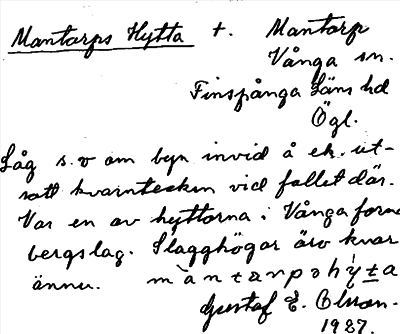 Mantorps Hytta t. Mantorp
Vånga sn.
Finspånga Läns hd
Ögl.
Låg s.v om byn invid å ek. ut-
satt kvarntecken vid fallet där.
Var en av hyttorna i Vånga forna
bergslag. Slagghögar äro kvar
ännu.
Gustaf E. Olsson.
1937.